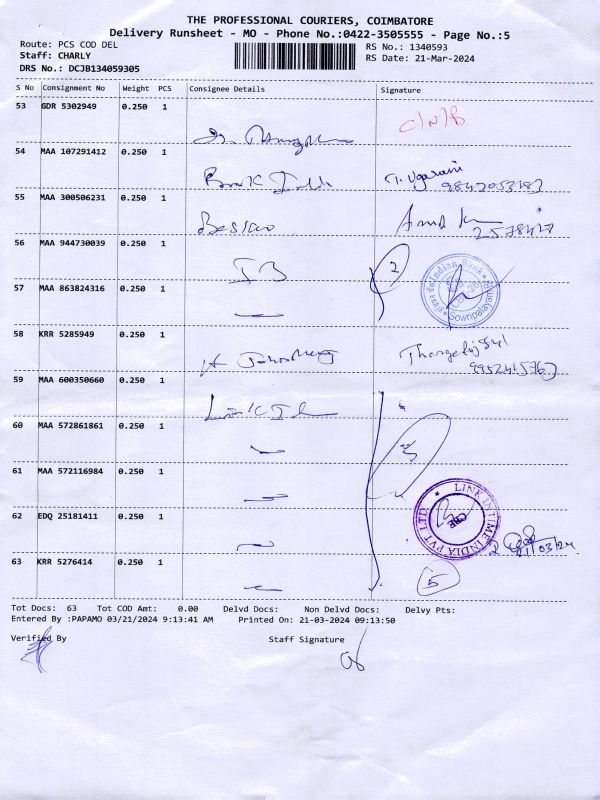 THE PROFESSIONAL COURIERS, COIMBATORE
Delivery Runsheet - MO - Phone No.:0422-3505555 - Page No.:5
Route: PCS COD DEL
RS No.: 1340593
Staff: CHARLY
RS Date: 21-Mar-2024
DRS No.: DCJB134059305
S No Consignment No Weight PCS Consignee Details Signature
53 GDR 5302949 0.250 1
C/N/B
54 MAA 107291412 0.250 1
55 MAA 300506231 0.250 1
2578427
56 MAA 944730039 0.250 1
IB 2
Indian Bank
Sowripalayam
57 MAA 863824316 0.250 1
58 KRR 5285949 0.250 1
59 MAA 600350660 0.250 1
60 MAA 572861861 0.250 1
5
61 MAA 572116984 0.250 1
LINK INTIME INDIA PVT LTD
CBE
62 EDQ 25181411 0.250 1
21/03/24
63 KRR 5276414 0.250 1
5
Tot Docs: 63 Tot COD Amt: 0.00 Delvd Docs: Non Delvd Docs: Delvy Pts:
Entered By :PAPAMO 03/21/2024 9:13:41 AM Printed On: 21-03-2024 09:13:50
Verified By Staff Signature